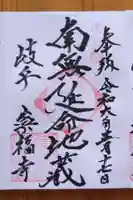 奉拝 令和六年三月十七日
南無延命地蔵
岐阜
崇福寺